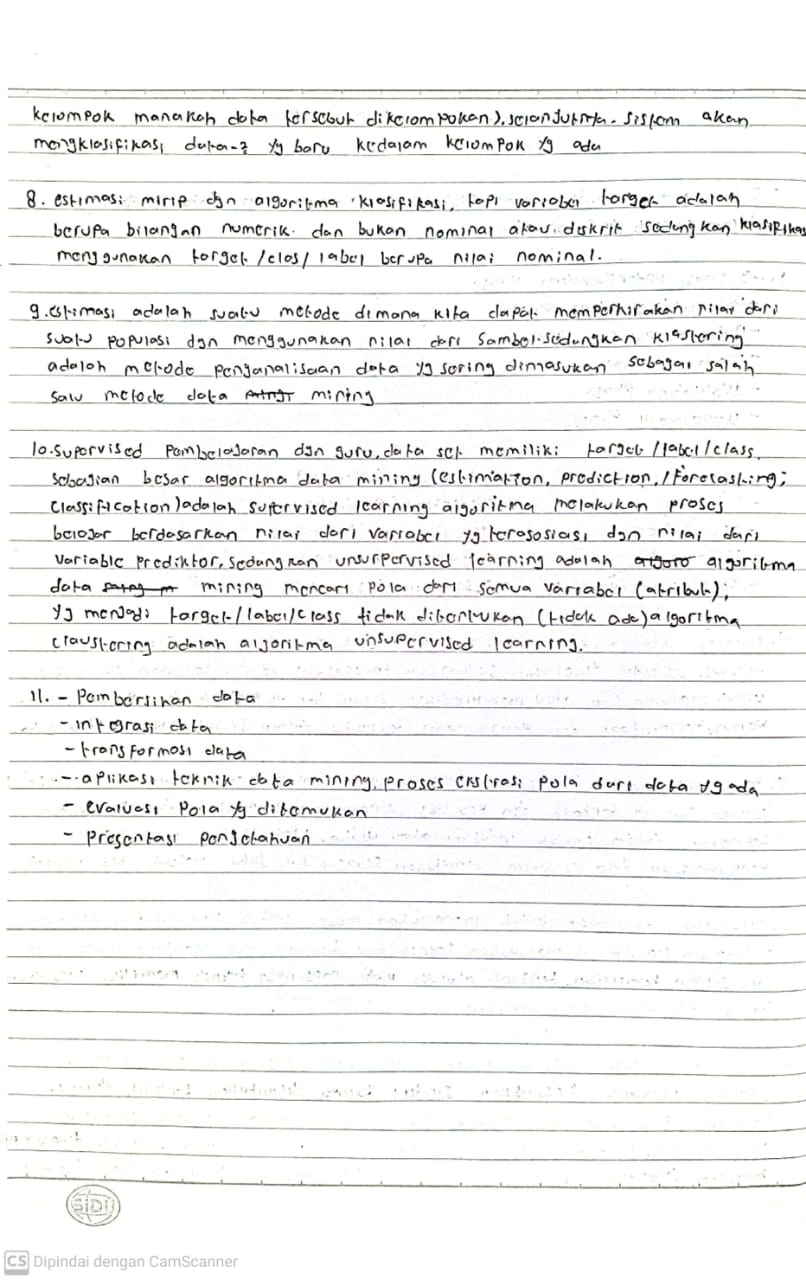 kelompok manakah data tersebut dikelompokan), selanjutnya. sistem akan
mengklasifikasi data-2 yg baru kedalam kelompok yg ada
8. estimasi mirip dgn algoritma klasifikasi, tapi variabel target adalah
berupa bilangan numerik dan bukan nominal atau diskrit sedangkan klasifikas
menggunakan target/clas/label berupa nilai nominal.
9. estimasi adalah suatu metode dimana kita dapat memperkirakan nilai dari
suatu populasi dgn menggunakan nilai dari sambel. sedangkan klastering
adalah metode penganalisaan data yg sering dimasukan sebagai salah
satu metode data mining
10. Supervised Pembelajaran dgn guru, data set memiliki target/label/class,
sebagian besar algoritma data mining (estimation, prediction,/forecasting;
classification) adalah supervised learning algoritma melakukan proses
belajar berdasarkan nilai dari variabel yg terasosiasi dgn nilai dari
variable prediktor, sedangkan unsurpervised learning adalah algoritma
data mining mencari pola dari semua variabel (atribut);
yg menjadi target/label/class tidak ditentukan (tidak ada) algoritma
claustering adalah algoritma unsupervised learning.
11. - Pembersihan data
- integrasi data
- transformasi data
- aplikasi teknik data mining, proses ekstrasi pola dari data yg ada
- evaluasi pola yg ditemukan
- presentasi pengetahuan
SIDU
CS Dipindai dengan CamScanner